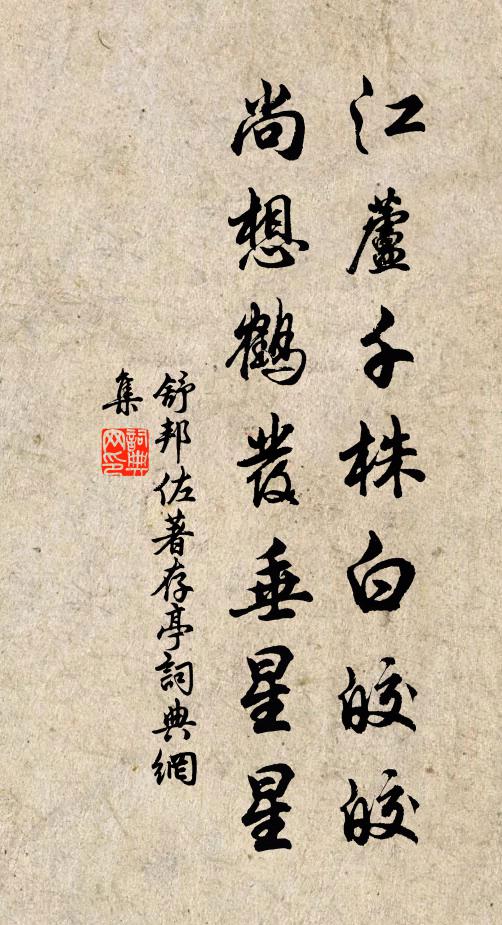 江蘆千株白皎皎
尚想鶴發垂星星
舒邦佐著存亭詞典網
集
詞典
网印